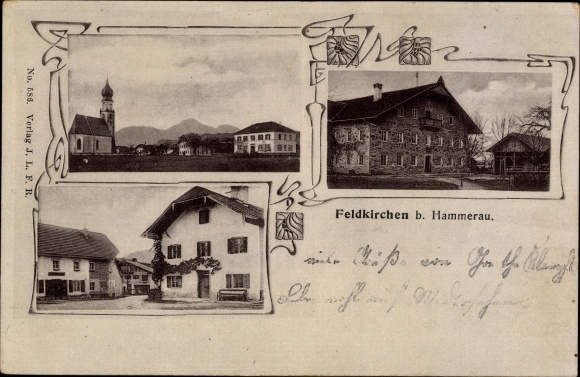 No. 586. Verlag J. L. F. R.
Feldkirchen b. Hammerau.
viele Grüße von
Lebe wohl auf Wiedersehen